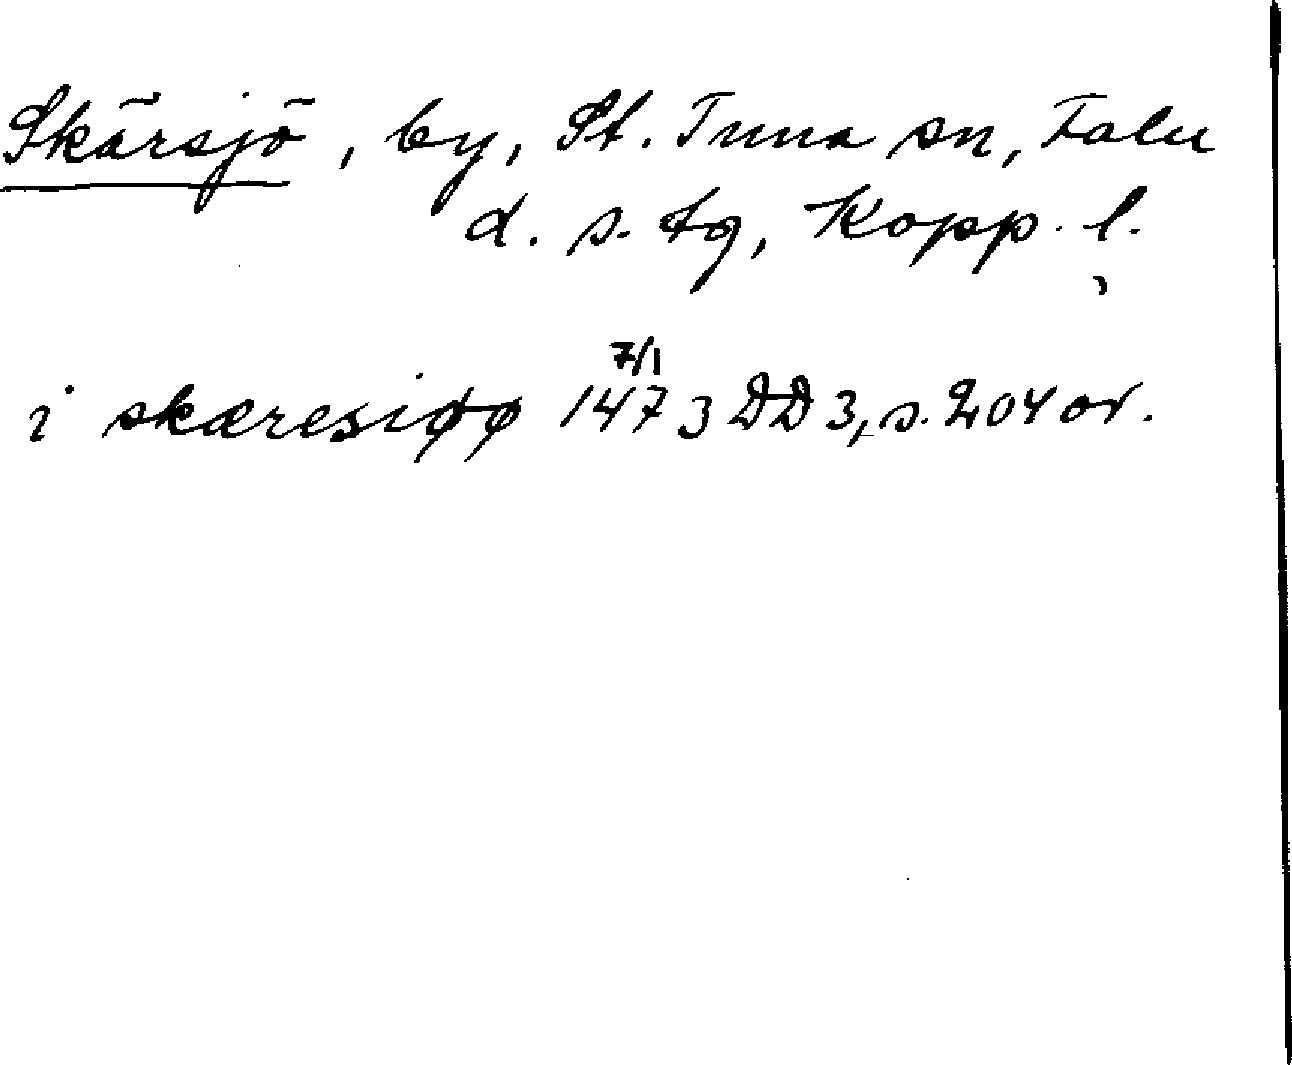 Skärsjö, by, St. Tuna sn, Falu
d. s. tg, Kopp. l.
i skæresiøø 7/1 1473 DD 3, s. 204 or.